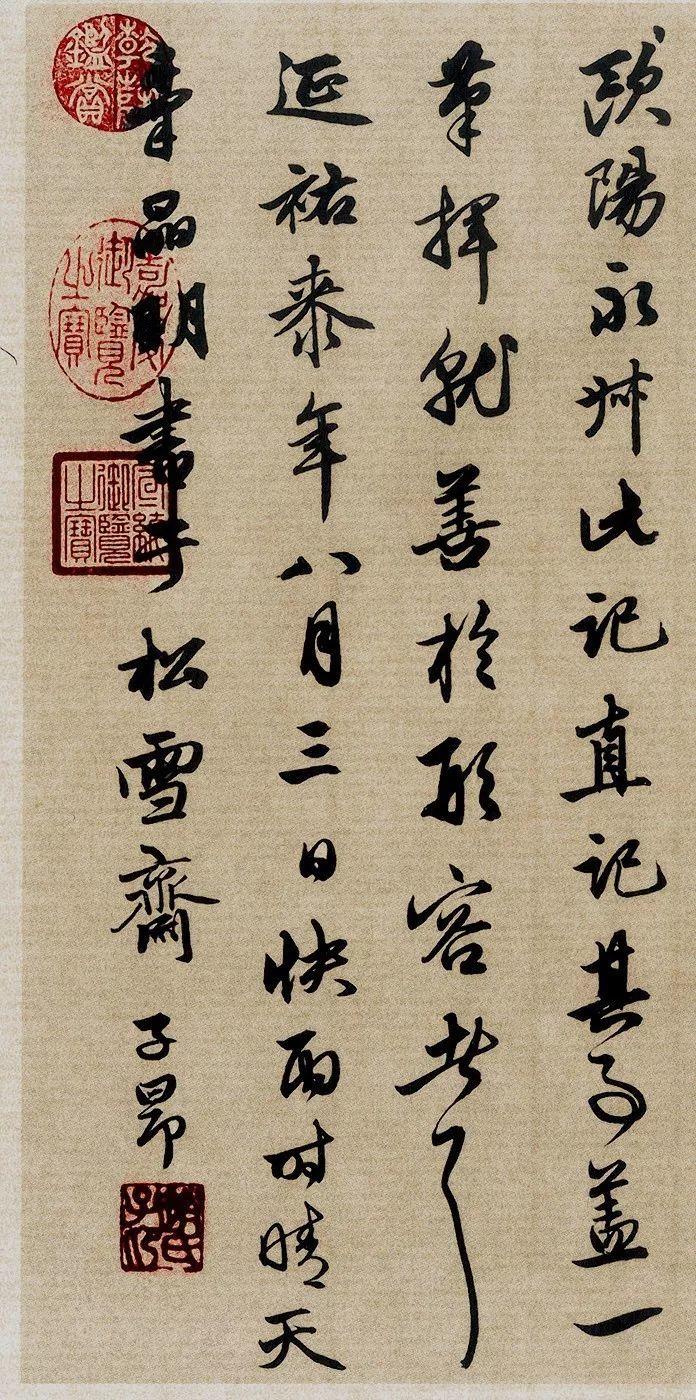 歐陽永叔此記直記其事蓋一
筆揮就善於形容者耳
延祐桼年八月三日快雨時晴天
華晶明書于松雪齋 子昂
乾隆鑑賞
嘉慶御覽之寶
宣統御覽之寶
趙氏子昂